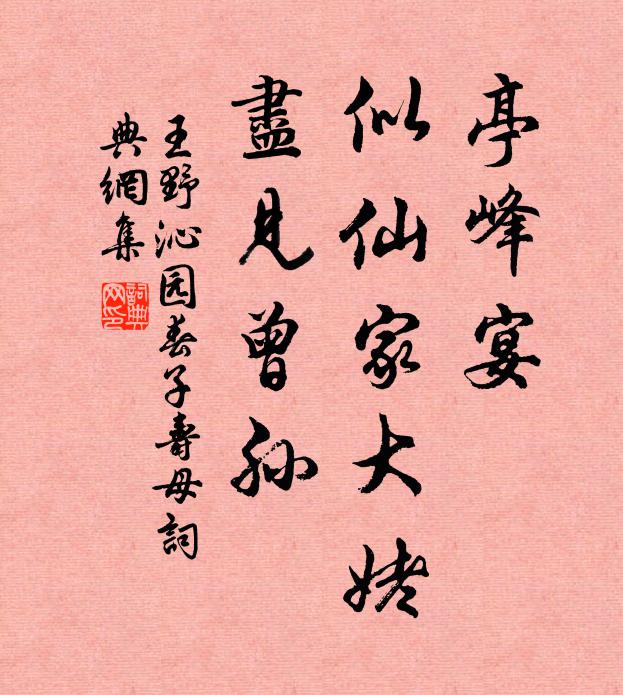 亭峰宴
似仙家大姥
盡見曾孙
王野沁园春子壽母詞
典網集
詞典网印